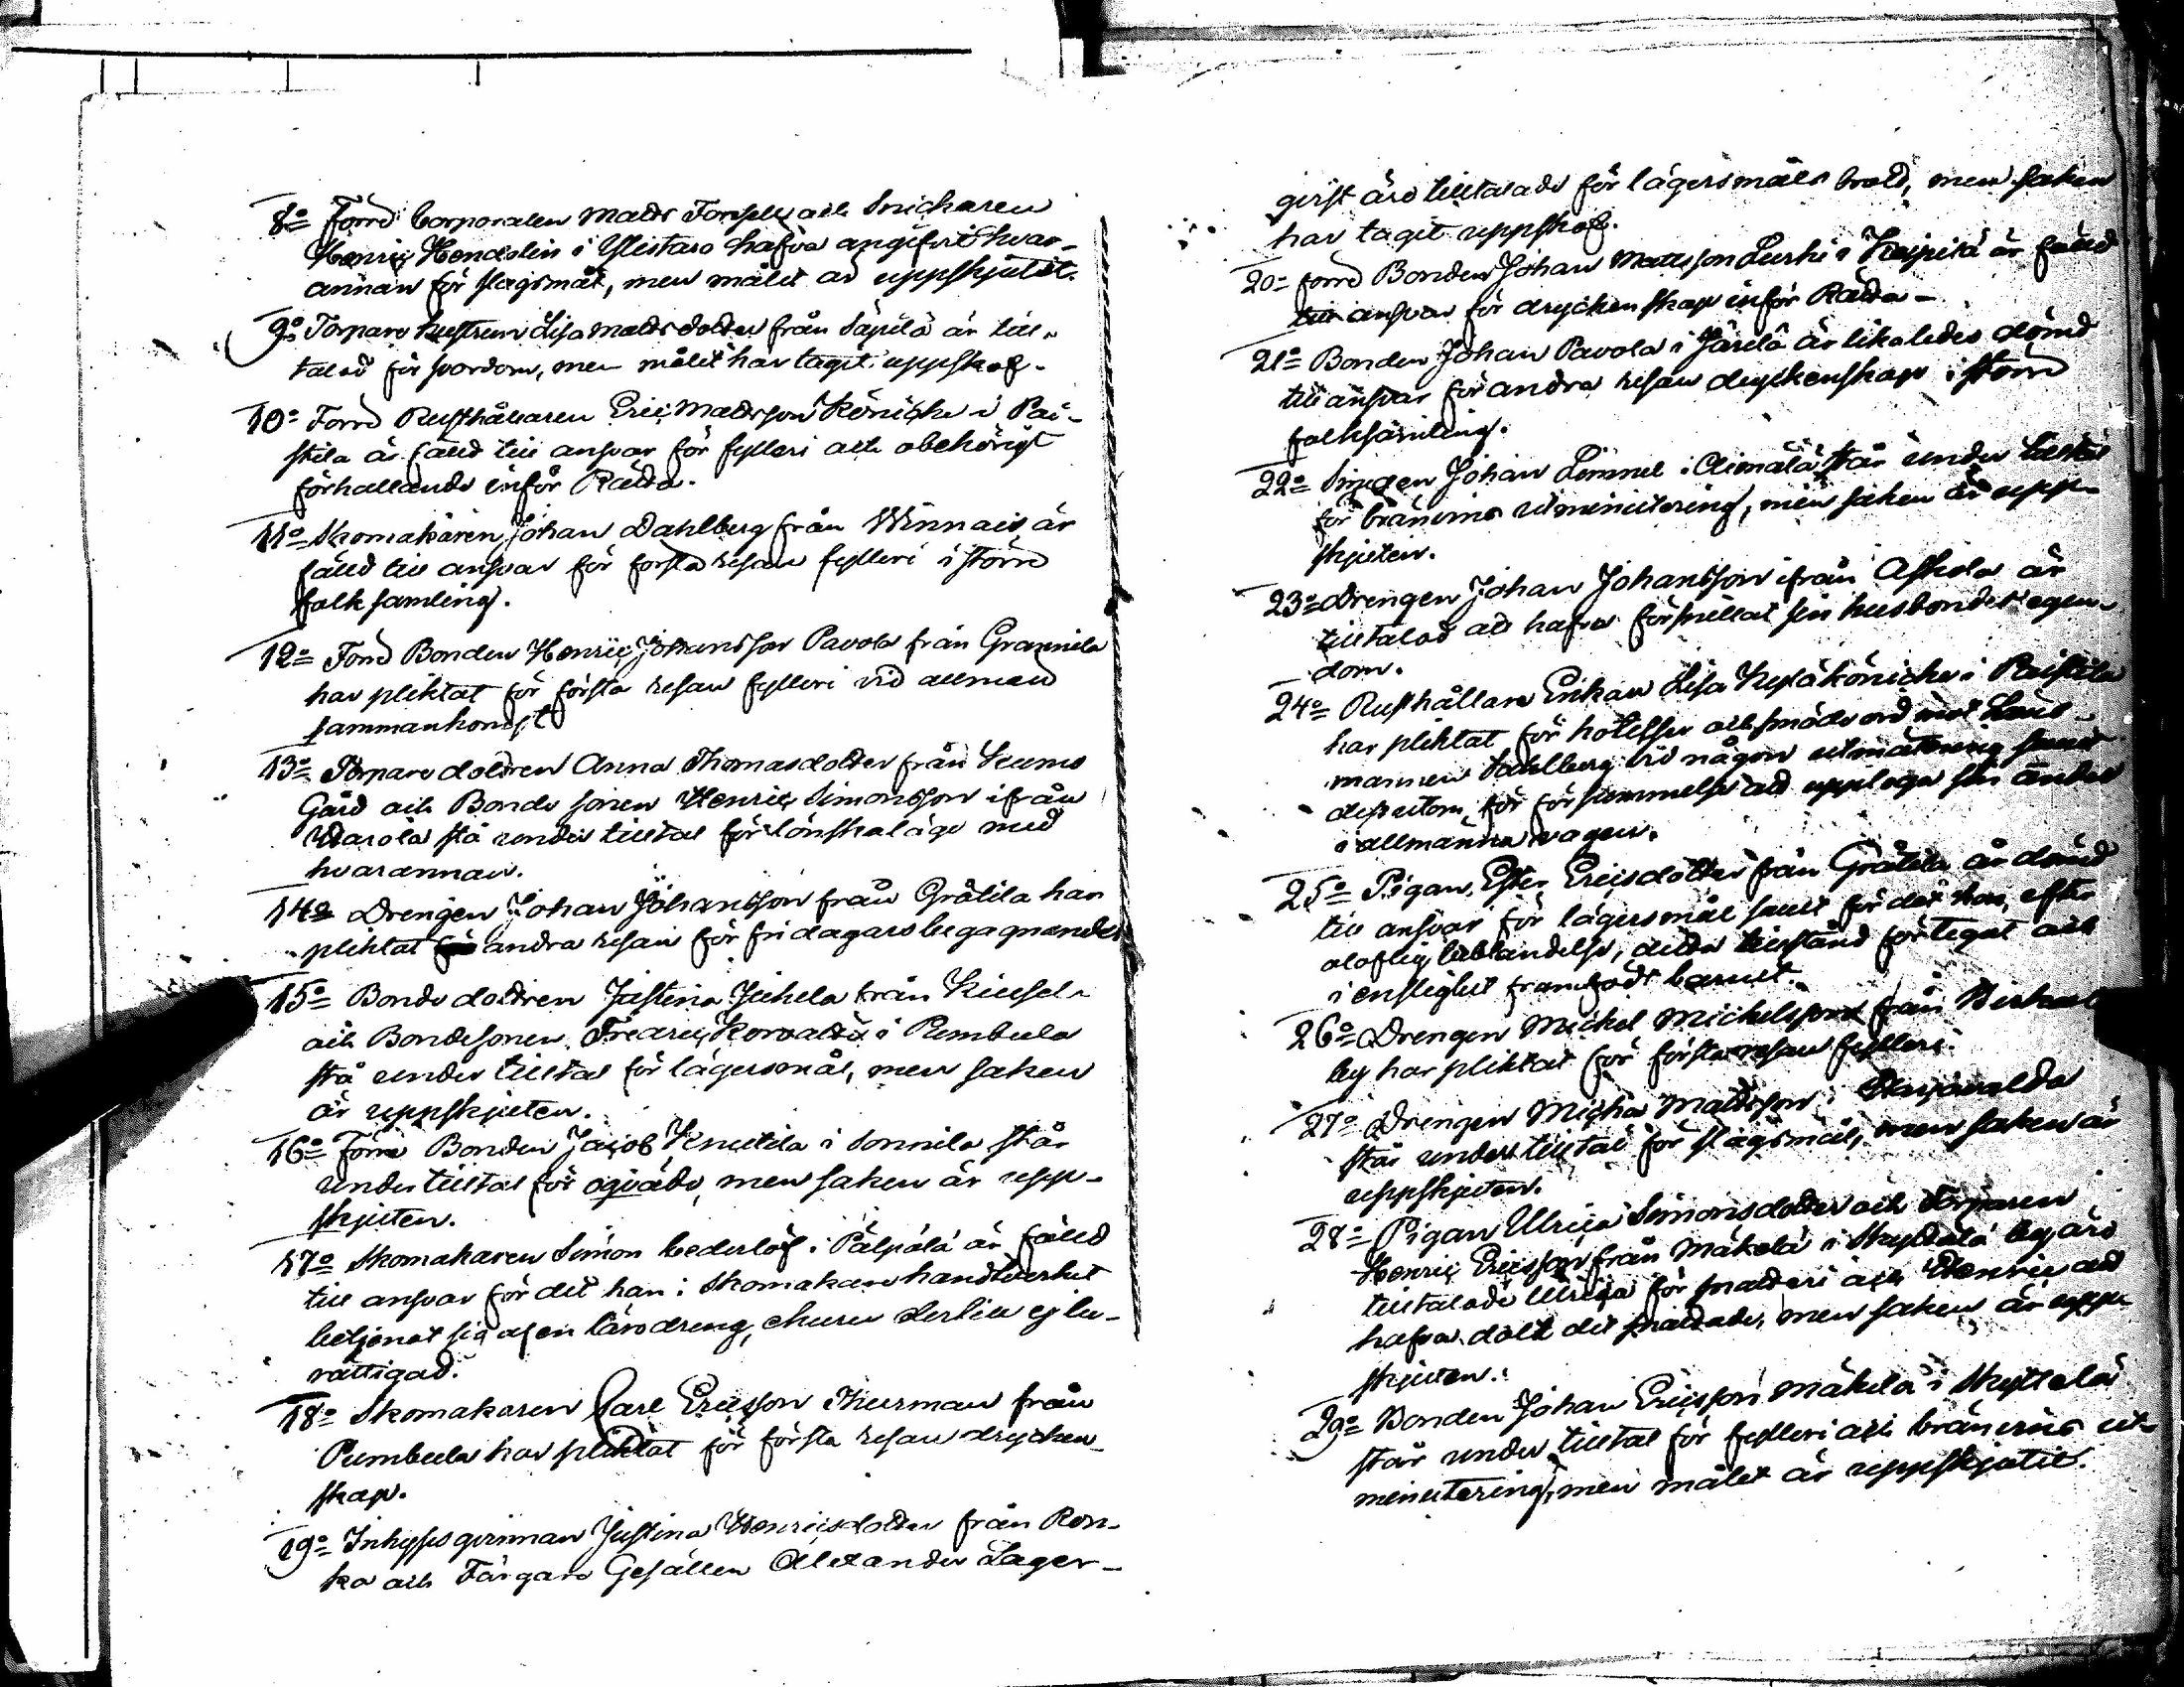 8o Förrd Corporalen Matts Forsell och Snickaren
Henric Hendolin i Ylistaro hafva angifvit hvar-
annan för slagsmål, men målet är uppskjutit.
9o Torpare hustrun Lisa Mattsdotter från Säpilä är till-
talad för svordom, men målet har tagit uppskof.
10o Förrd Rusthållaren Eric Mattsson Könicke i Pai-
stila är fälld till ansvar för fylleri och obehörigt
förhallande inför Rätta.
11o Skomakaren Johan Dahlberg från Winnais är
fälld till ansvar för första resan fylleri i större
folksamling.
12o Förrd Bonden Henric Johansson Pavola från Grannila
har pliktat för första resan fylleri vid allmän
sammankomst
13o Torpare dottren Anna Thomasdotter från Kumo
Gård och Bonde sonen Henric Simonsson ifrån
stå under tilltal för lönskaläge med
hvarannan.
14o Drengen Johan Johansson från Gråtila har
pliktat andra resan för fridagars begagnande
15o Bonde dottren Justina Juhela från
och Bondesonen Fredric i Pumbula
stå under tilltal för lägersmål, men saken
är uppskjuten.
16o Förre Bonden Jacob Knuutila i Sonnila står
under tilltal för ogväde, men saken är upp-
skjuten.
17o Skomakaren Simon Cederlöf i Pälpälä är fälld
till ansvar för det han i Skomakare handtverket
betjenat sig af en lärodreng, churu dertill ej be-
rättigad.
18o Skomakaren Carl Ericsson Kurman från
Pumbula har pliktat för första resan drycken-
skap.
19o Inhyses qvinnan Justina Henricsdotter från Ron-
ka och Färgare Gesällen Alexander Lager-
qvist äro tilltalade för lägersmåls brott, men saken
har tagit uppskof.
20o Förrd Bonden Johan Mattsson i är fälld
till ansvar för dryckenskap inför Rätta-
21o Bonden Johan Pavola i Järilä är likaledes dömd
till ansvar för andra resan dryckenskap i större
folksamling.
22o Johan Limnel i står under tilltal
för bränvins utminutering, men saken är upp-
skjuten.
23o Drengen Johan Johansson ifrån Askola är
tilltalad att hafva förspillat sin husbondes egen-
dom.
24o Rusthållare Enkan Lisa Kyläkönicke i Paistila
har pliktat för hotelser och smädeord mot Läns-
mannen Sahlberg vid någon utmätning samt
dessutom för försummelse att upptaga sin andel
i allmänna vägen.
25o Pigan Ester Ericsdotter från Gråtila är dömd
till ansvar för lägersmål samt för det hon, efter
oloflig beblandelse, detta tillstånd förtegat och
i enslighet framfödt barnet.
26o Drengen Michel Michelsson från
by har pliktat för första resan fylleri.
27o Drengen Michel Mattsson i Harjavalda
står under tilltal för slagsmål, men saken är
uppskjuten.
28o Pigan Ulrica Simonsdotter och Torparen
Henric Ericsson från Mäkelä i Skyttälä by äro
tilltalade Ulrica för snatteri och Henric att
hafva dolt det snattade, men saken är upp-
skjuten.
29o Bonden Johan Ericsson Mäkelä i Skyttälä
står under tilltal för fylleri och bränvins ut-
minutering, men målet är uppskjutit.